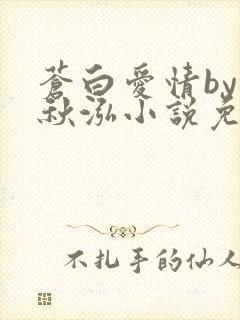 蒼白愛情by
秋泓小說免
不扎手的仙人